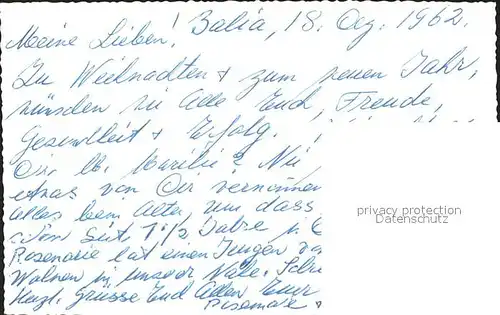 Bahia, 18. Dez. 1962.
Meine Lieben!
Zu Weihnachten + zum neuen Jahr,
wünschen wir Alle Euch, Freude,
Gesundheit + Erfolg.
Dir, lb. 
etwas von Dir vernommen
alles beim Alten, nur dass
seit 1 1/2 Jahre
Rosemarie hat einen Jungen
Wohnen in unserer Nähe.
Herzl. Grüsse Euch Allen Eure
Rosemarie
privacy protection
Datenschutz